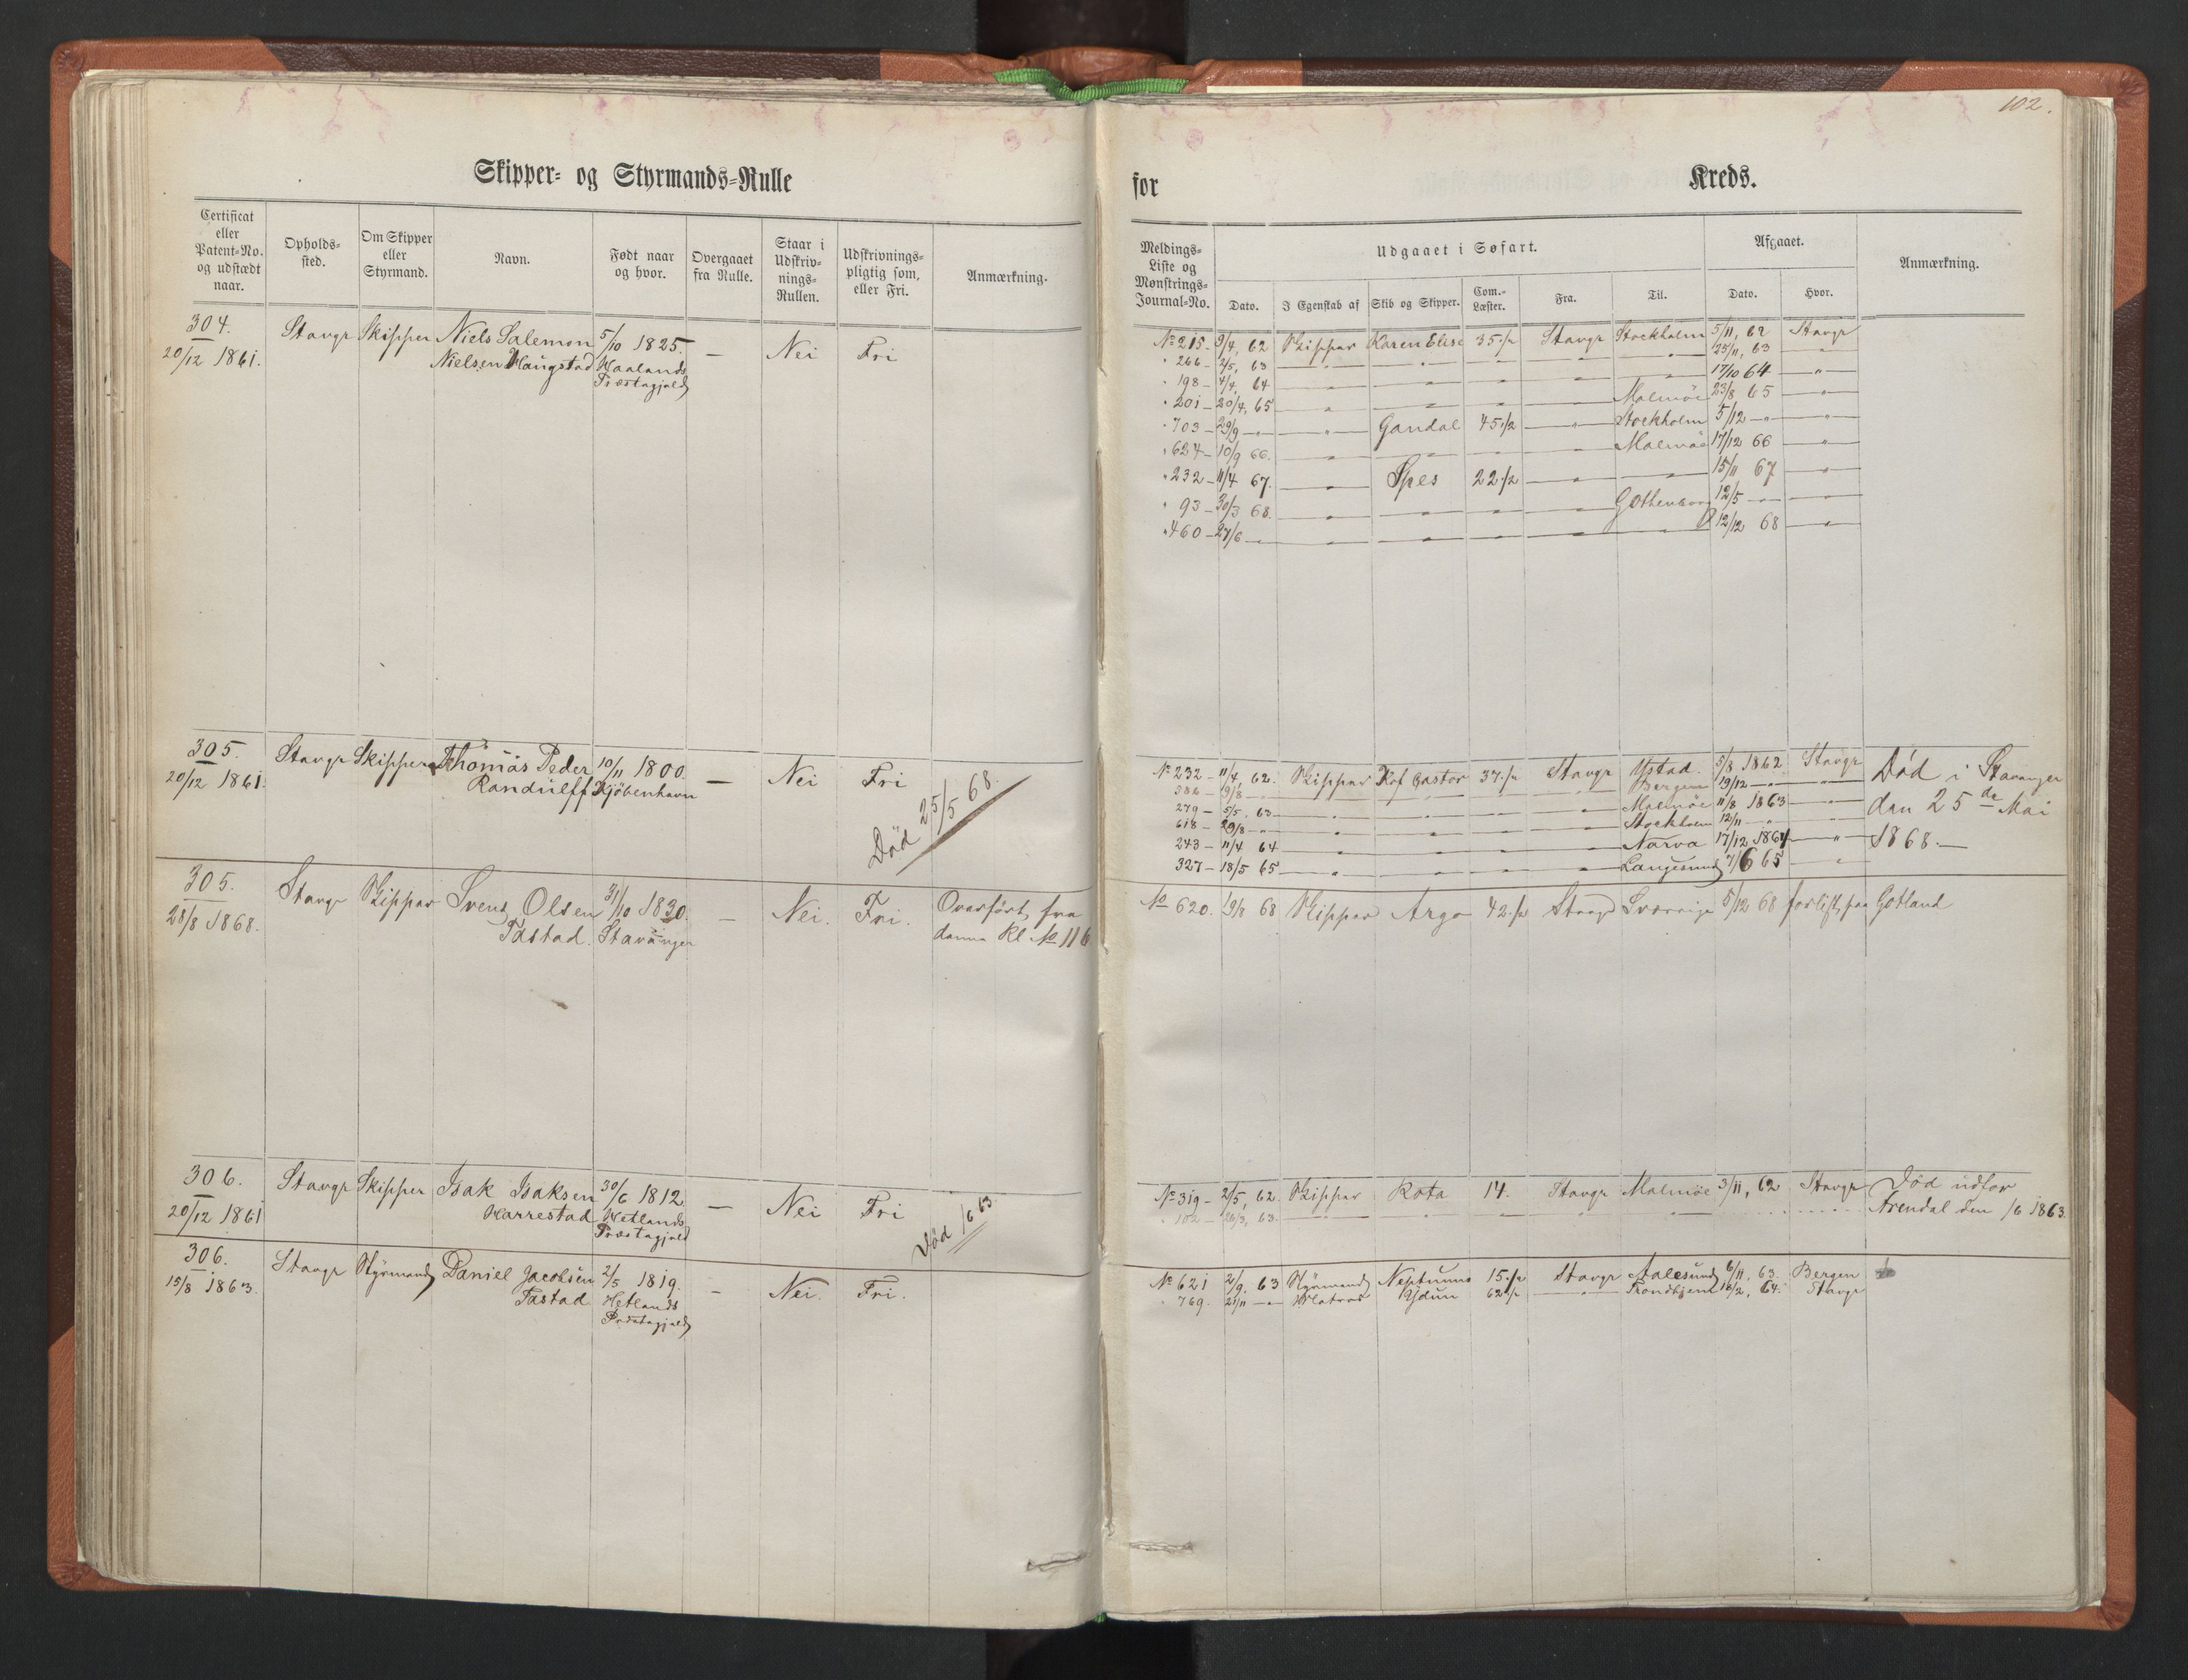 102.
Skipper- og Styrmands-Rulle
for Kreds.
Certificat eller Patent-No. og udstædt naar.
Opholds-sted.
Om Skipper eller Styrmand.
Navn.
Født naar og hvor.
Overgaaet fra Rulle.
Staar i Udskriv-nings-Rullen.
Udskrivnings-pligtig som, eller Fri.
Anmærkning.
Meldings-Liste og Mønstrings-Journal-No.
Udgaaet i Søfart.
Dato.
I Egenskab af
Skib og Skipper.
Com.-Læster.
Fra.
Til.
Afgaaet.
Dato.
Hvor.
Anmærkning.
304. Stavgr Skipper Niels Salemon 5/10 1825. — Nei Fri
20/12 1861. Nielsen Haugstad Haalands
Præstegjeld
No 215 - 9/4, 62 Skipper Karen Elise 35 1/2 Stavgr Stockholm 5/11, 62 Stavgr
" 266 - 2/5, 63 — " — " — " — " — " 25/11, 63 — "
" 198 - 4/4, 64 — " — " — " — " — " 17/10 64 — "
" 201 - 20/4, 65 — " — " — " — " Malmöe 23/8 65 — "
" 703 - 29/9 — " — " Gandal 45 1/2 — " Stockholm 5/12 — " — "
" 624 - 10/9 66. — " — " — " — " Malmöe 17/12 66 — "
" 232 - 11/4 67. — " Spes 22 1/2 — " — " 15/11 67 — "
" 93 - 30/3 68. — " — " — " — " Gothenborg 12/5 — " — "
" 460 - 27/6 — " — " — " — " — " — " 12/12 68 — "
305. Stavgr Skipper Thomas Peder 10/11 1800. — Nei Fri
20/12 1861. Randulff Kjöbenhavn
Död 25/5 68
No 232 - 11/4, 62. Skipper Kof Castor 37 1/2 Stavgr Ystad. 5/8 1862 Stavgr Död i Stavanger
386 - 9/8 — " Bergen 19/12 — " — "
279 - 5/5, 63 — " — " — " — " Malmöe 11/8 1863 — " den 25 de Mai
618 - 29/8 — " — " — " — " — " Stockholm 12/11 — " — "
243 - 11/4 64 — " — " — " — " Narva 17/12 1864 — " 1868. —
327 - 18/5 65 — " — " — " — " Langesund 7/6 65 — "
305. Stavgr Skipper Svend Olsen 31/10 1830. — Nei. Fri. Overfört fra
28/8 1868. Tastad. Stavanger denne Rl No 116
No 620. 19/8 68 Skipper Argo 42 1/2 Stavgr Sverrige 5/12 68 forlist paa Gotland
306. Stavgr Skipper Isak Isaksen 30/6 1812 — Nei Fri
20/12 1861 Harrestad Hetlands
Præstegjeld
Död /6 63
No 319 - 2/5, 62. Skipper Rota 14. Stavgr Malmöe 3/11, 62 Stavgr Död udfor
" 102 - 26/3, 63. — " — " — " — " — " Arendal den /6 1863.
306. Stavgr Styrmand Daniel Jacobsen 2/5 1819. — Nei. Fri.
15/8 1863. Tastad Hetlands
Præstegjeld
No 621 2/9. 63 Styrmand Neptunus 15 1/2 Stavgr Aalesund 6/11, 63. Bergen
" 769. 21/11 — " Matros Ydun 62 1/2 — " Trondhjem 16/2, 64. Stavgr